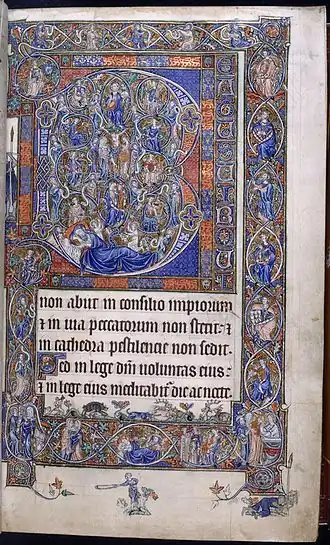 B
non abiit in consilio impiorum
⁊ in uia peccatorum non stetit: ⁊
in cathedra pestilencie non sedit.
Sed in lege dn̄i uoluntas eius:
⁊ in lege eius meditabit᷑ die ac nocte.